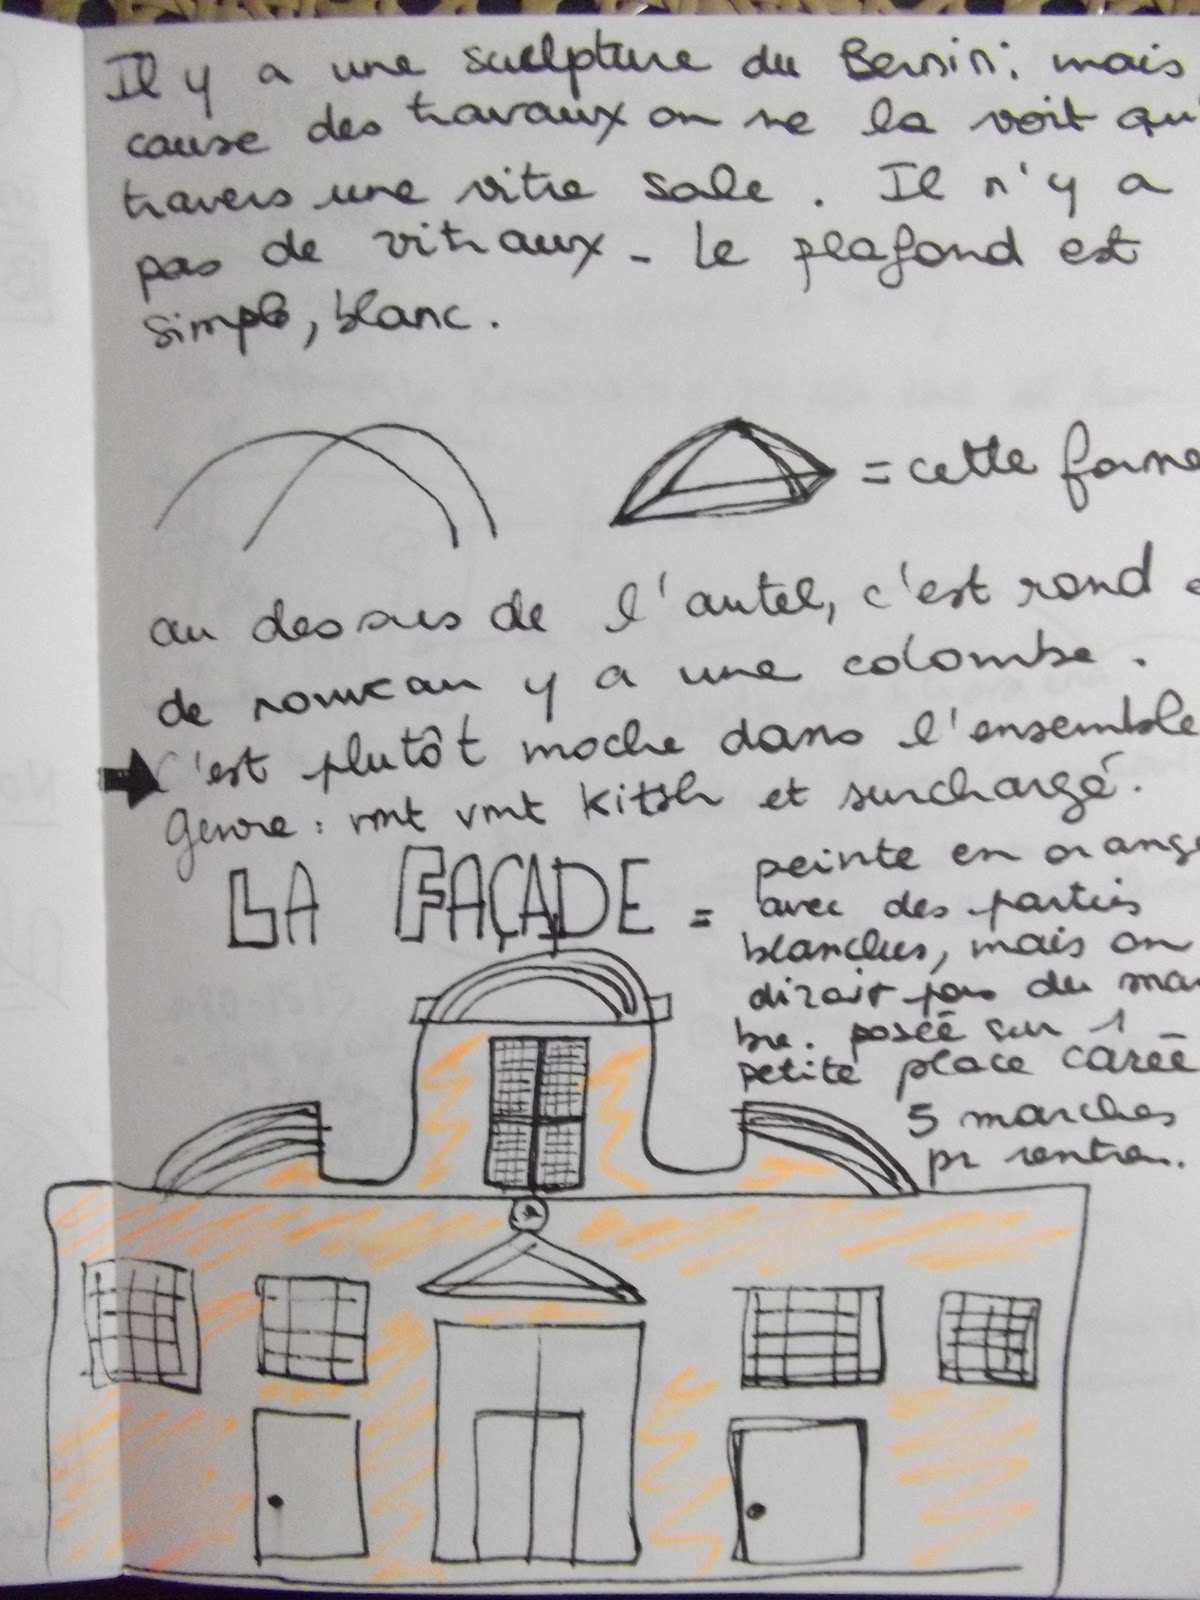 Il y a une sculpture du Bernin; mais
cause des travaux on ne la voit qu'
travers une vitre sale. Il n'y a
pas de vitraux - Le plafond est
simple, blanc.
= cette forme
au dessus de l'autel, c'est rond
de nouveau y a une colombe.
C'est plutôt moche dans l'ensemble
Genre: vmt vmt Kitsh et surchargé.
LA FAÇADE =
peinte en orange
avec des parties
blanches, mais on
dirait pas du mar
bre. poséé sur 1
petite place caréé
5 marches
pr rentrer.